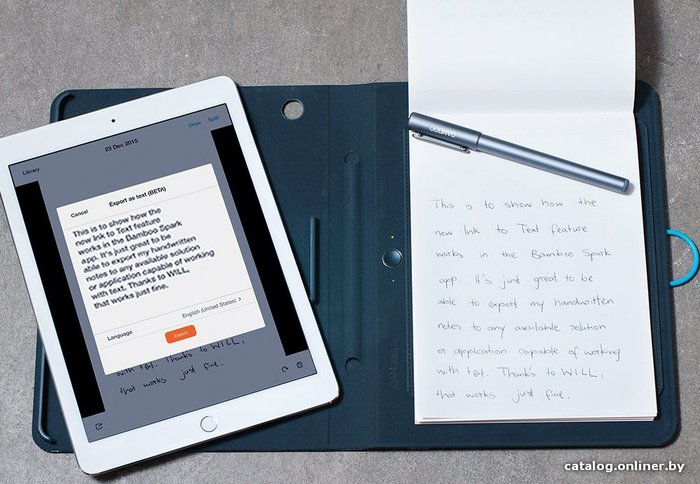 23 Dec 2015
Draw Split
Library
Cancel Export as text (BETA)
This is to show how the
new Ink to Text feature
works in the Bamboo Spark
app. It's just great to be
able to export my handwritten
notes to any available solution
or application capable of working
with text. Thanks to WILL,
that works just fine.
Language English (United States) >
Export
with text. Thanks to WILL,
that works just fine.
BAMBOO
This is to show how the
new Ink to Text feature
works in the Bamboo Spark
app. It's just great to be
able to export my handwritten
notes to any available solution
or application capable of working
with text. Thanks to WILL,
that works just fine.
BAMBOO
catalog.onliner.by